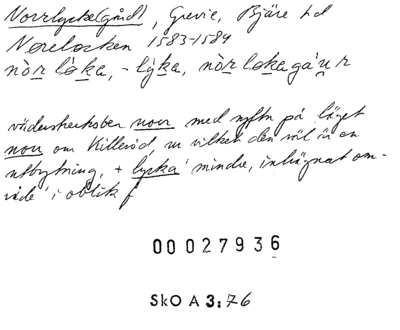 Norrlycke(gård), Grevie, Bjäre hd
Norelocken 1583-1584
nòr lỏka, -lýka, nòr lokagá'u̯r
väderstrecksben norr med syftn på läget
norr om Killeröd, ur vilket den väl är en
utbrytning, + lycka 'mindre, inhägnat om-
råde' i oblik f
00027936
SkO A 3:76